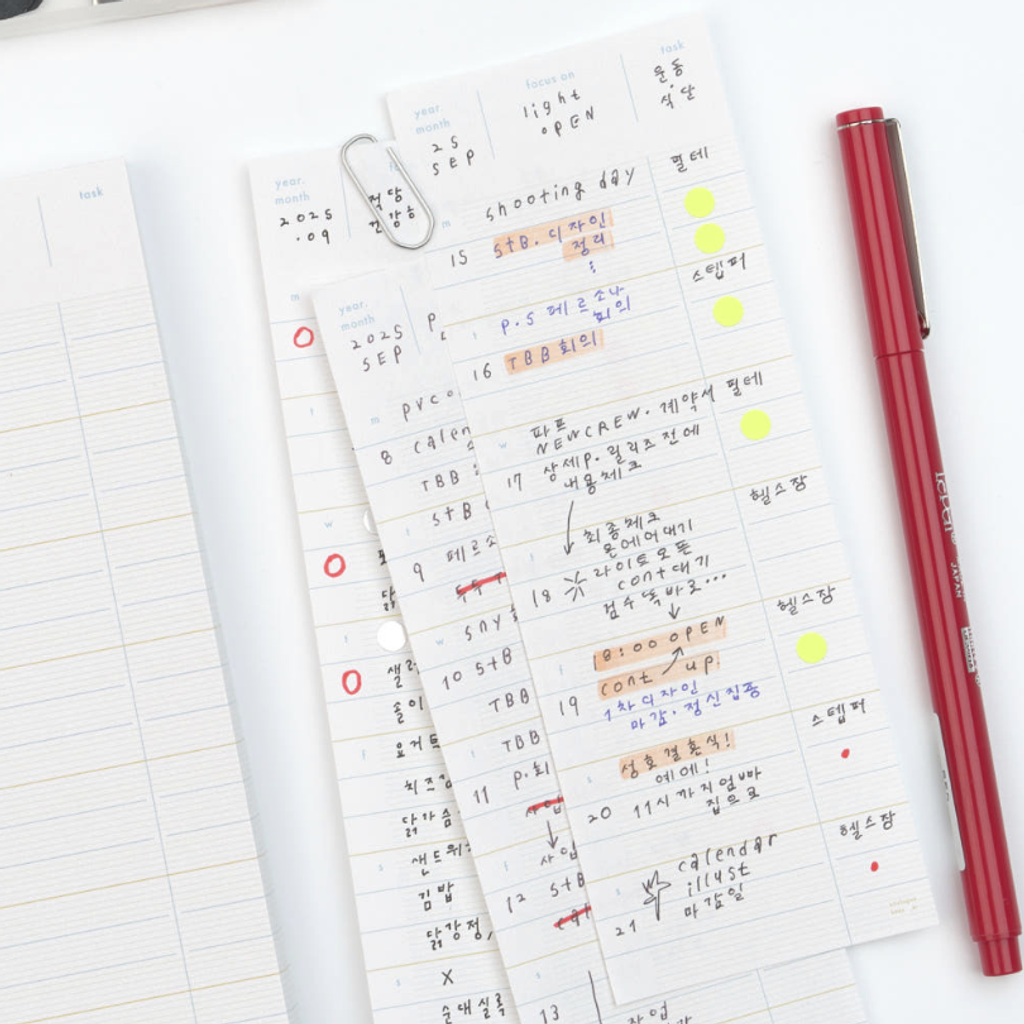 task
year.
month
2025
.09
적당
건강
m
t
w
t
f
s
s
샐러
솔이
요거트
치즈
닭가슴
샌드위
김밥
닭강정,
X
순대실록
year.
month
2025
SEP
p
m
8
pvco
calen
TBB
t
9
STB
페르소
w
10
sny
STB
TBB
t
11
TBB
p.회
사업
f
12
사업
STB
s
13
사업
year.
month
25
SEP
focus on
light
OPEN
task
운동
식단
m
15
shooting day
STB. 디자인
정리
필테
t
16
P.S 페르소나
회의
TBB 회의
스텝퍼
w
17
파프
NEWCREW. 계약서
상세P. 릴리즈 전에
내용체크
필테
t
18
최종체크
문에어대기
라이트오픈
cont대기
검수똑바로...
헬스장
f
19
18:00 OPEN
cont up.
1차디자인
마감.정신집중
헬스장
s
20
성호결혼식!
예에!
11시까지엄빠
집으로
스텝퍼
s
21
calendar
illust
마감일
헬스장
JAPAN